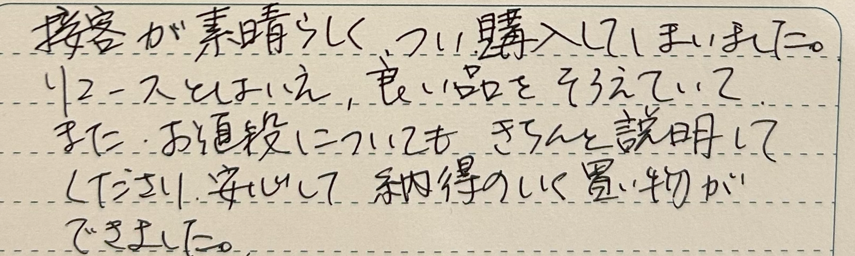 接客が素晴らしく、つい購入してしまいました。
リユースとはいえ、良い品をそろえていて、
また、お値段についても きちんと説明して
くださり、安心して 納得のいく買い物が
できました。